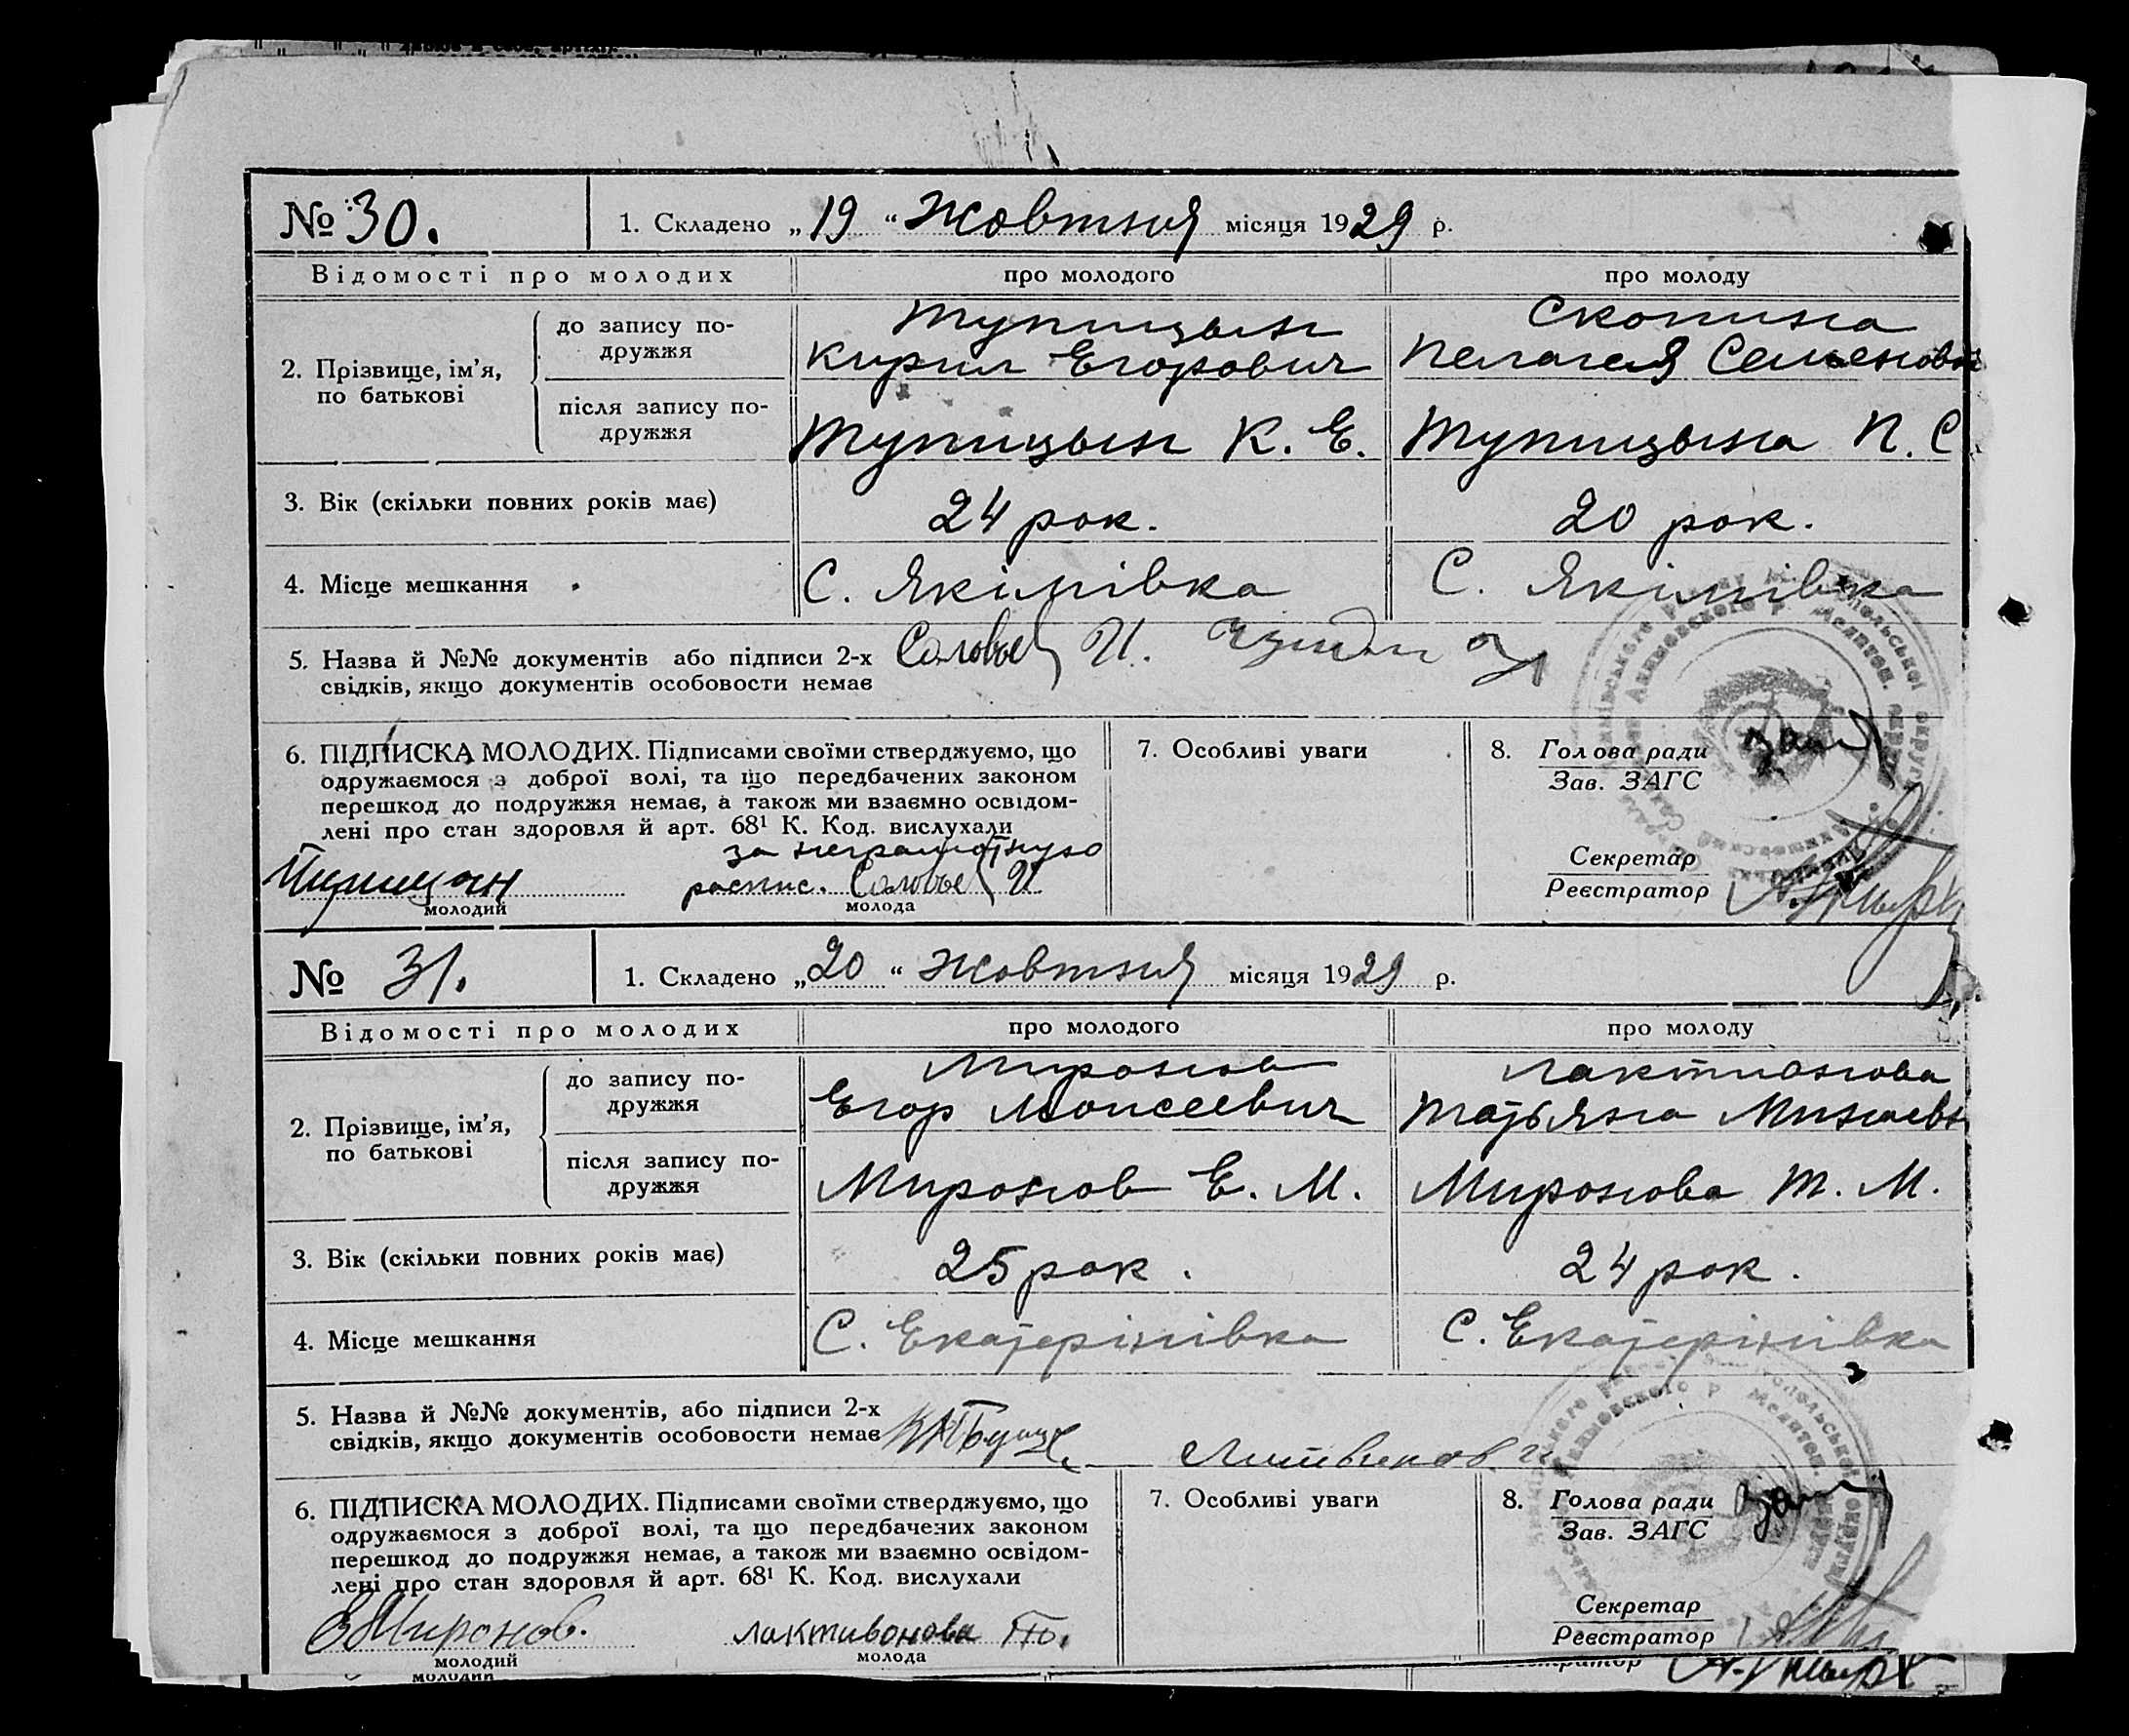 № 30. 1. Складено „19“ Жовтня місяця 1929 р.
Відомості про молодих про молодого про молоду
2. Прізвище, ім’я, по батькові
до запису по-
дружжя
Тупицын
Кирил Егорович
Скопина
Пелагея Семенов
після запису по-
дружжя
Тупицын К. Е.
Тупицына П. С
3. Вік (скільки повних років має) 24 рок. 20 рок.
4. Місце мешкання С. Якімівка С. Якімівка
5. Назва й №№ документів або підписи 2-х Соловьев И.
свідків, якщо документів особовости немає
6. ПІДПИСКА МОЛОДИХ. Підписами своїми стверджуємо, що
одружаємося з доброї волі, та що передбачених законом
перешкод до подружжя немає, а також ми взаємно освідом-
лені про стан здоровля й арт. 68¹ К. Код. вислухали
за неграмотную
Тупицын роспис. Соловьев И
молодий молода
7. Особливі уваги
8. Голова ради
Зав. ЗАГС
Секретар
Реєстратор
№ 31. 1. Складено „20“ Жовтня місяця 1929 р.
Відомості про молодих про молодого про молоду
2. Прізвище, ім’я, по батькові
до запису по-
дружжя
Миронов
Егор Моисеевич
Лактионова
Татьяна
після запису по-
дружжя
Миронов Е. М.
Миронова Т. М.
3. Вік (скільки повних років має) 25 рок. 24 рок.
4. Місце мешкання С. Екатерінівка С. Екатерінівка
5. Назва й №№ документів, або підписи 2-х
свідків, якщо документів особовости немає Литвинов И
6. ПІДПИСКА МОЛОДИХ. Підписами своїми стверджуємо, що
одружаємося з доброї волі, та що передбачених законом
перешкод до подружжя немає, а також ми взаємно освідом-
лені про стан здоровля й арт. 68¹ К. Код. вислухали
Е Миронов. лактивонова
молодий молода
7. Особливі уваги
8. Голова ради
Зав. ЗАГС
Секретар
Реєстратор
молодий